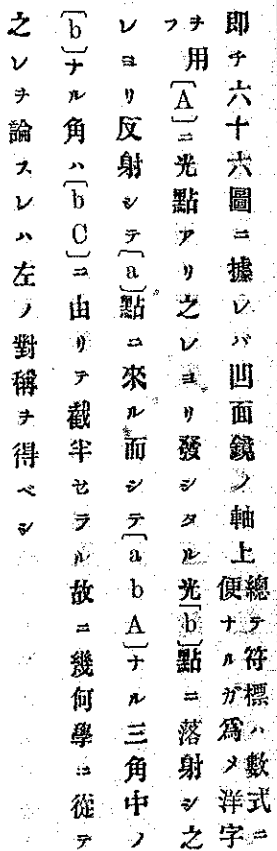 即チ六十六圖ニ據レバ凹面鏡ノ軸上
總テ符標ハ數式ニ
便ナルガ爲メ洋字
ヲ用
フ
〔A〕ニ光點アリ之レヨリ發シタル光〔b〕點ニ落射シ之
レヨリ反射シテ〔a〕點ニ來ル而シテ〔a b A〕ナル三角中ノ
〔b〕ナル角ハ〔b C〕ニ由リテ截半セラル故ニ幾何學ニ從テ
之レヲ論スレハ左ノ對稱ヲ得ベシ